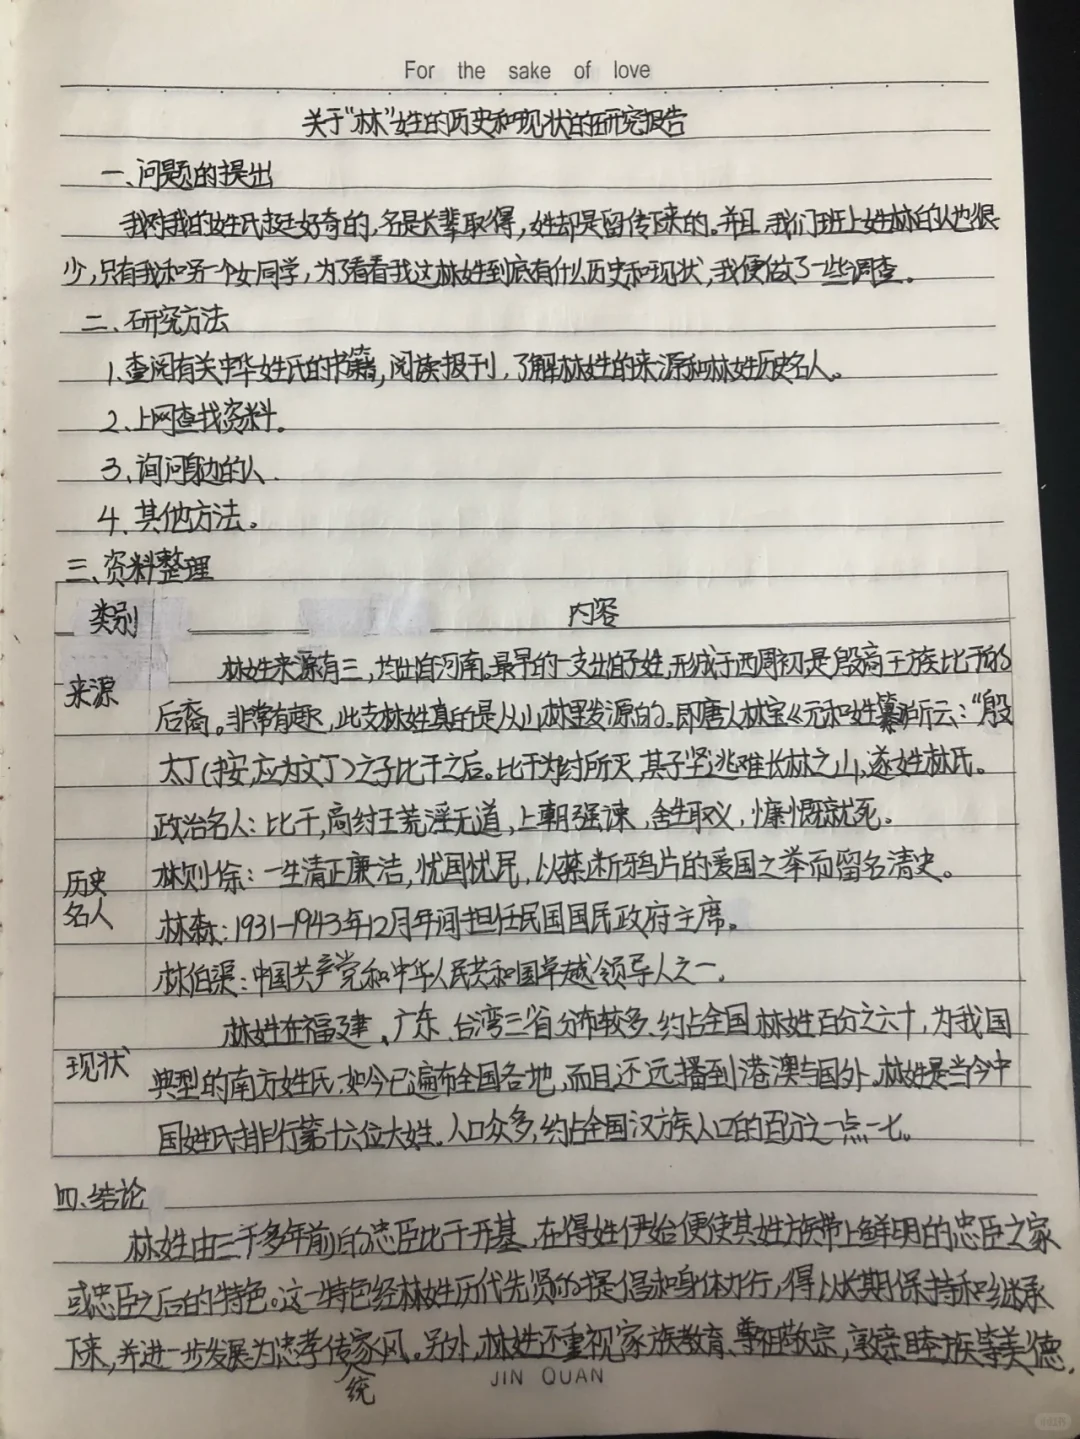 For the sake of love
关于"林"姓的历史和现状的研究报告
一、问题的提出
我对我的姓氏挺好奇的,名是长辈取得,姓却是留传下来的。并且,我们班上姓林的人也很
少,只有我和另一个女同学,为了看看我这林姓到底有什么历史和现状,我便做了一些调查。
二、研究方法
1.查阅有关中华姓氏的书籍,阅读报刊,了解林姓的来源和林姓历史名人。
2、上网查找资料。
3、询问身边的人.
4.其他方法。
三、资料整理
类别 内容
林姓来源有三,均出自河南。最早的一支出自子姓,形成于西周初,是殷商王族比干的
来源
后裔。非常有趣,此支林姓真的是从山林里发源的。即唐人林宝《元和姓纂》所云:"殷
太丁(按,应为文丁)之子比干之后。比干为纣所灭,其子坚逃难长林之山,遂姓林氏。
政治名人:比干,商纣王荒淫无道,上朝强谏,舍生取义,慷慨就死。
历史
名人
林则徐:一生清正廉洁,忧国忧民,以禁断鸦片的爱国之举而留名清史。
林森:1931-1943年12月年间担任民国国民政府主席。
林伯渠:中国共产党和中华人民共和国卓越领导人之一.
林姓在福建、广东、台湾三省分布较多、约占全国林姓百分之六十,为我国
现状
典型的南方姓氏,如今已遍布全国各地,而且还远播到港澳与国外。林姓是当今中
国姓氏排行第十六位大姓。人口众多,约占全国汉族人口的百分之一点一七。
四、结论
林姓由三千多年前的忠臣比干开基,在得姓伊始便使其姓族带上鲜明的忠臣之家
或忠臣之后的特色。这一特色经林姓历代先贤的提倡和身体力行,得以长期保持和继承
下来,并进一步发展为忠孝传统家风。另外,林姓还重视家族教育、尊祖敬宗,敦亲睦族等美德.
JIN QUAN